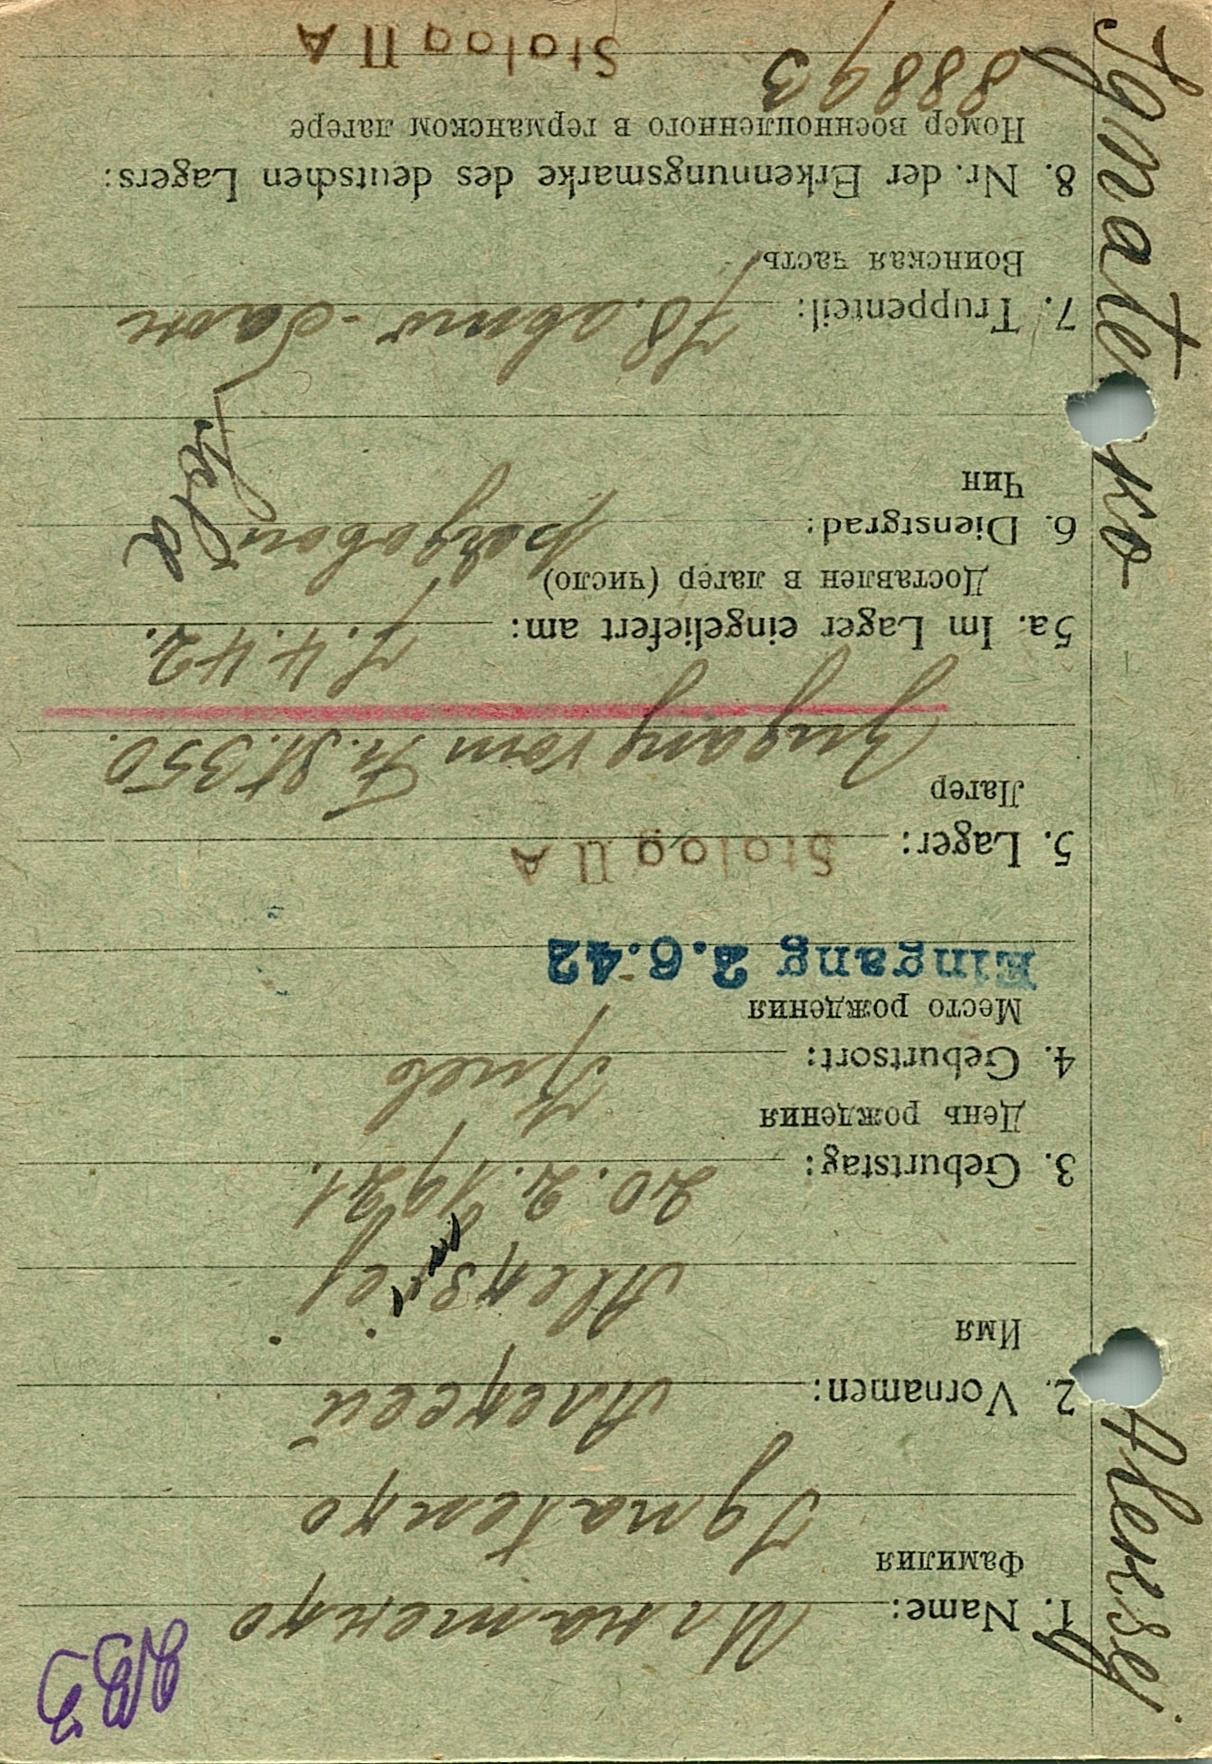 Ignatenko Aleksej
1. Name: Игнатенко
Фамилия
Ignatenko
2. Vornamen: Алексей
Имя
Aleksej
3. Geburtstag: 20.2.1921.
День рождения
4. Geburtsort: Киев
Место рождения
Eingang 2.6.42
5. Lager: Stalag II A
Лагер
Zugang vom Fr. St. 350.
5a. Im Lager eingeliefert am: 7.4.42.
Доставлен в лагер (число)
6. Dienstgrad: рядовой
Чин
Sold.
7. Truppenteil: 78. авто-бат
Воинская часть
8. Nr. der Erkennungsmarke des deutschen Lagers:
Номер военнопленного в германском лагере
88893
Stalag II A